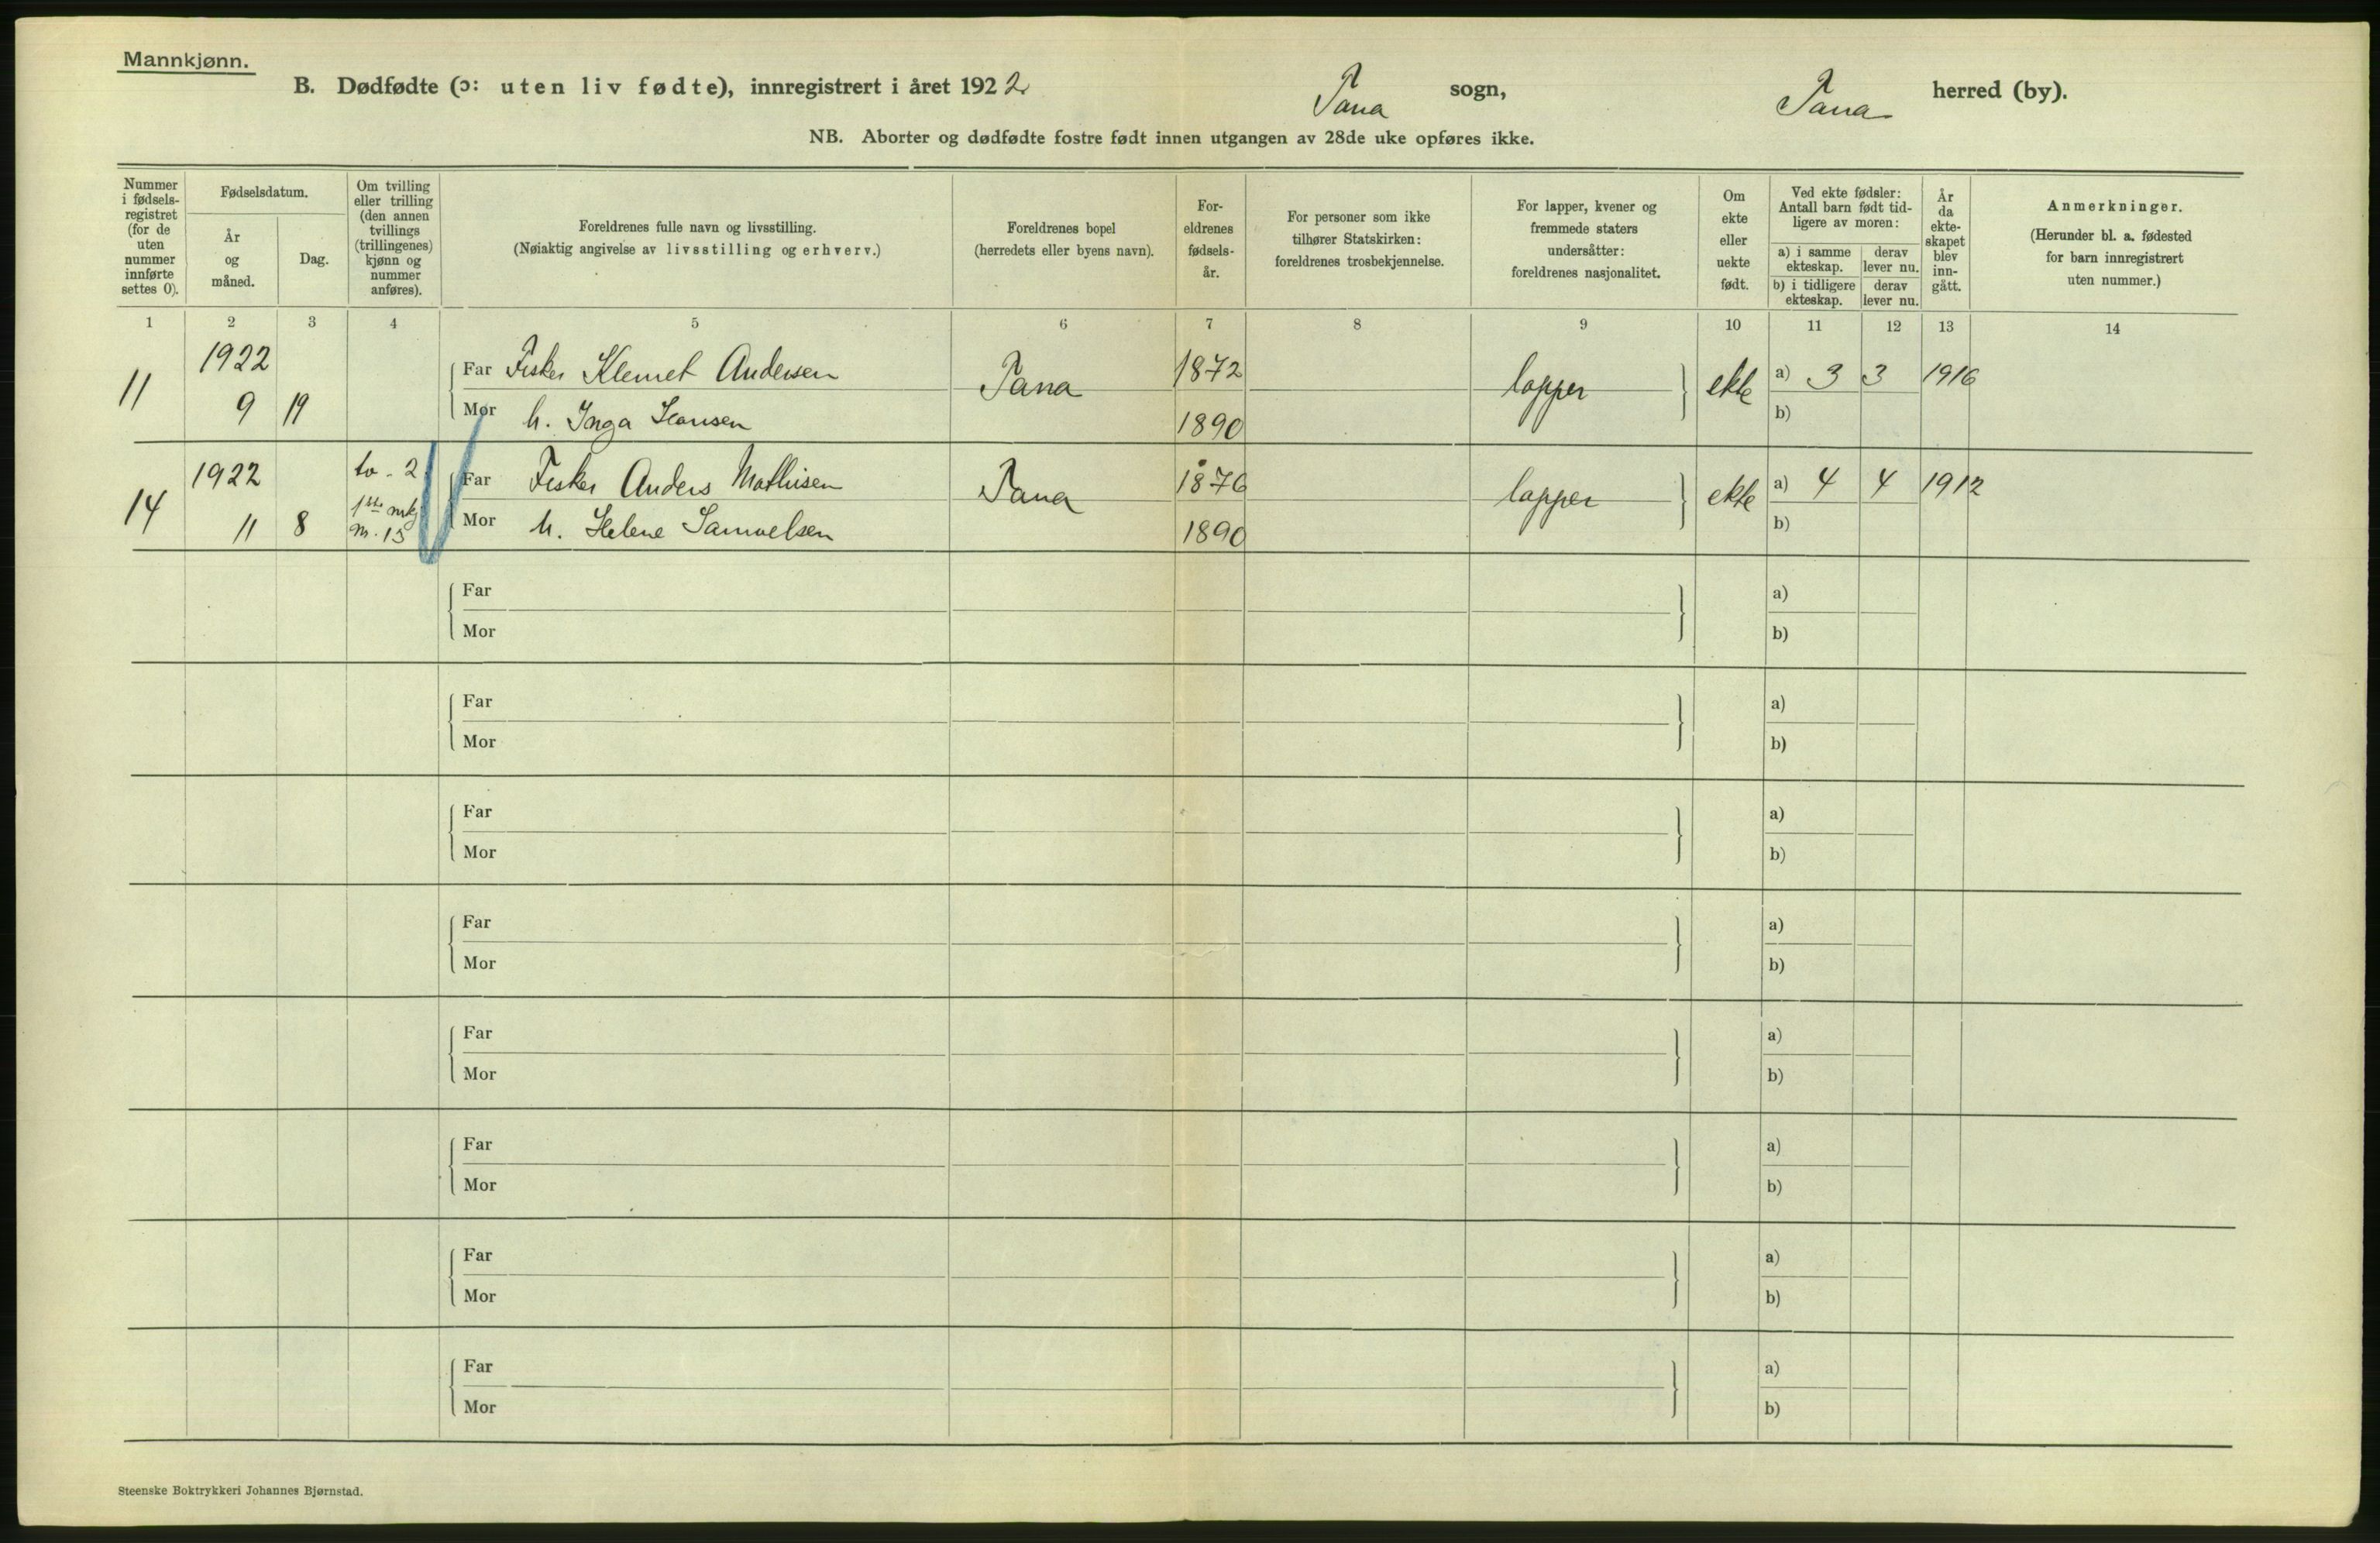 Mannkjønn.
B. Dødfødte (ɔ: uten liv fødte), innregistrert i året 1922 Tana sogn, Tana herred (by).
NB. Aborter og dødfødte fostre født innen utgangen av 28de uke opføres ikke.
Nummer
i fødsels-
registret
(for de
uten
nummer
innførte
settes 0).
Fødselsdatum.
År
og
måned.
Dag.
Om tvilling
eller trilling
(den annen
tvillings
(trillingenes)
kjønn og
nummer
anføres).
Foreldrenes fulle navn og livsstilling.
(Nøiaktig angivelse av livsstilling og erhverv.)
Foreldrenes bopel
(herredets eller byens navn).
For-
eldrenes
fødsels-
år.
For personer som ikke
tilhører Statskirken:
foreldrenes trosbekjennelse.
For lapper, kvener og
fremmede staters
undersåtter:
foreldrenes nasjonalitet.
Om
ekte
eller
uekte
født.
Ved ekte fødsler:
Antall barn født tid-
ligere av moren:
a) i samme
ekteskap.
derav
lever nu.
b) i tidligere
ekteskap.
derav
lever nu.
År
da
ekte-
skapet
blev
inn-
gått.
Anmerkninger.
(Herunder bl. a. fødested
for barn innregistrert
uten nummer.)
1 2 3 4 5 6 7 8 9 10 11 12 13 14
11 1922 Far Fisker Klemet Andersen Tana 1872 lapper ekte a) 3 3 1916
9 19 Mor h. Inga Hansen 1890 b)
14 1922 to - 2 Far Fisker Anders Mathisen Tana 1876 lapper ekte a) 4 4 1912
11 8 m. 13 Mor h. Helene Samuelsen 1890 b)
Far a)
Mor b)
Far a)
Mor b)
Far a)
Mor b)
Far a)
Mor b)
Far a)
Mor b)
Far a)
Mor b)
Far a)
Mor b)
Far a)
Mor b)
Steenske Boktrykkeri Johannes Bjørnstad.